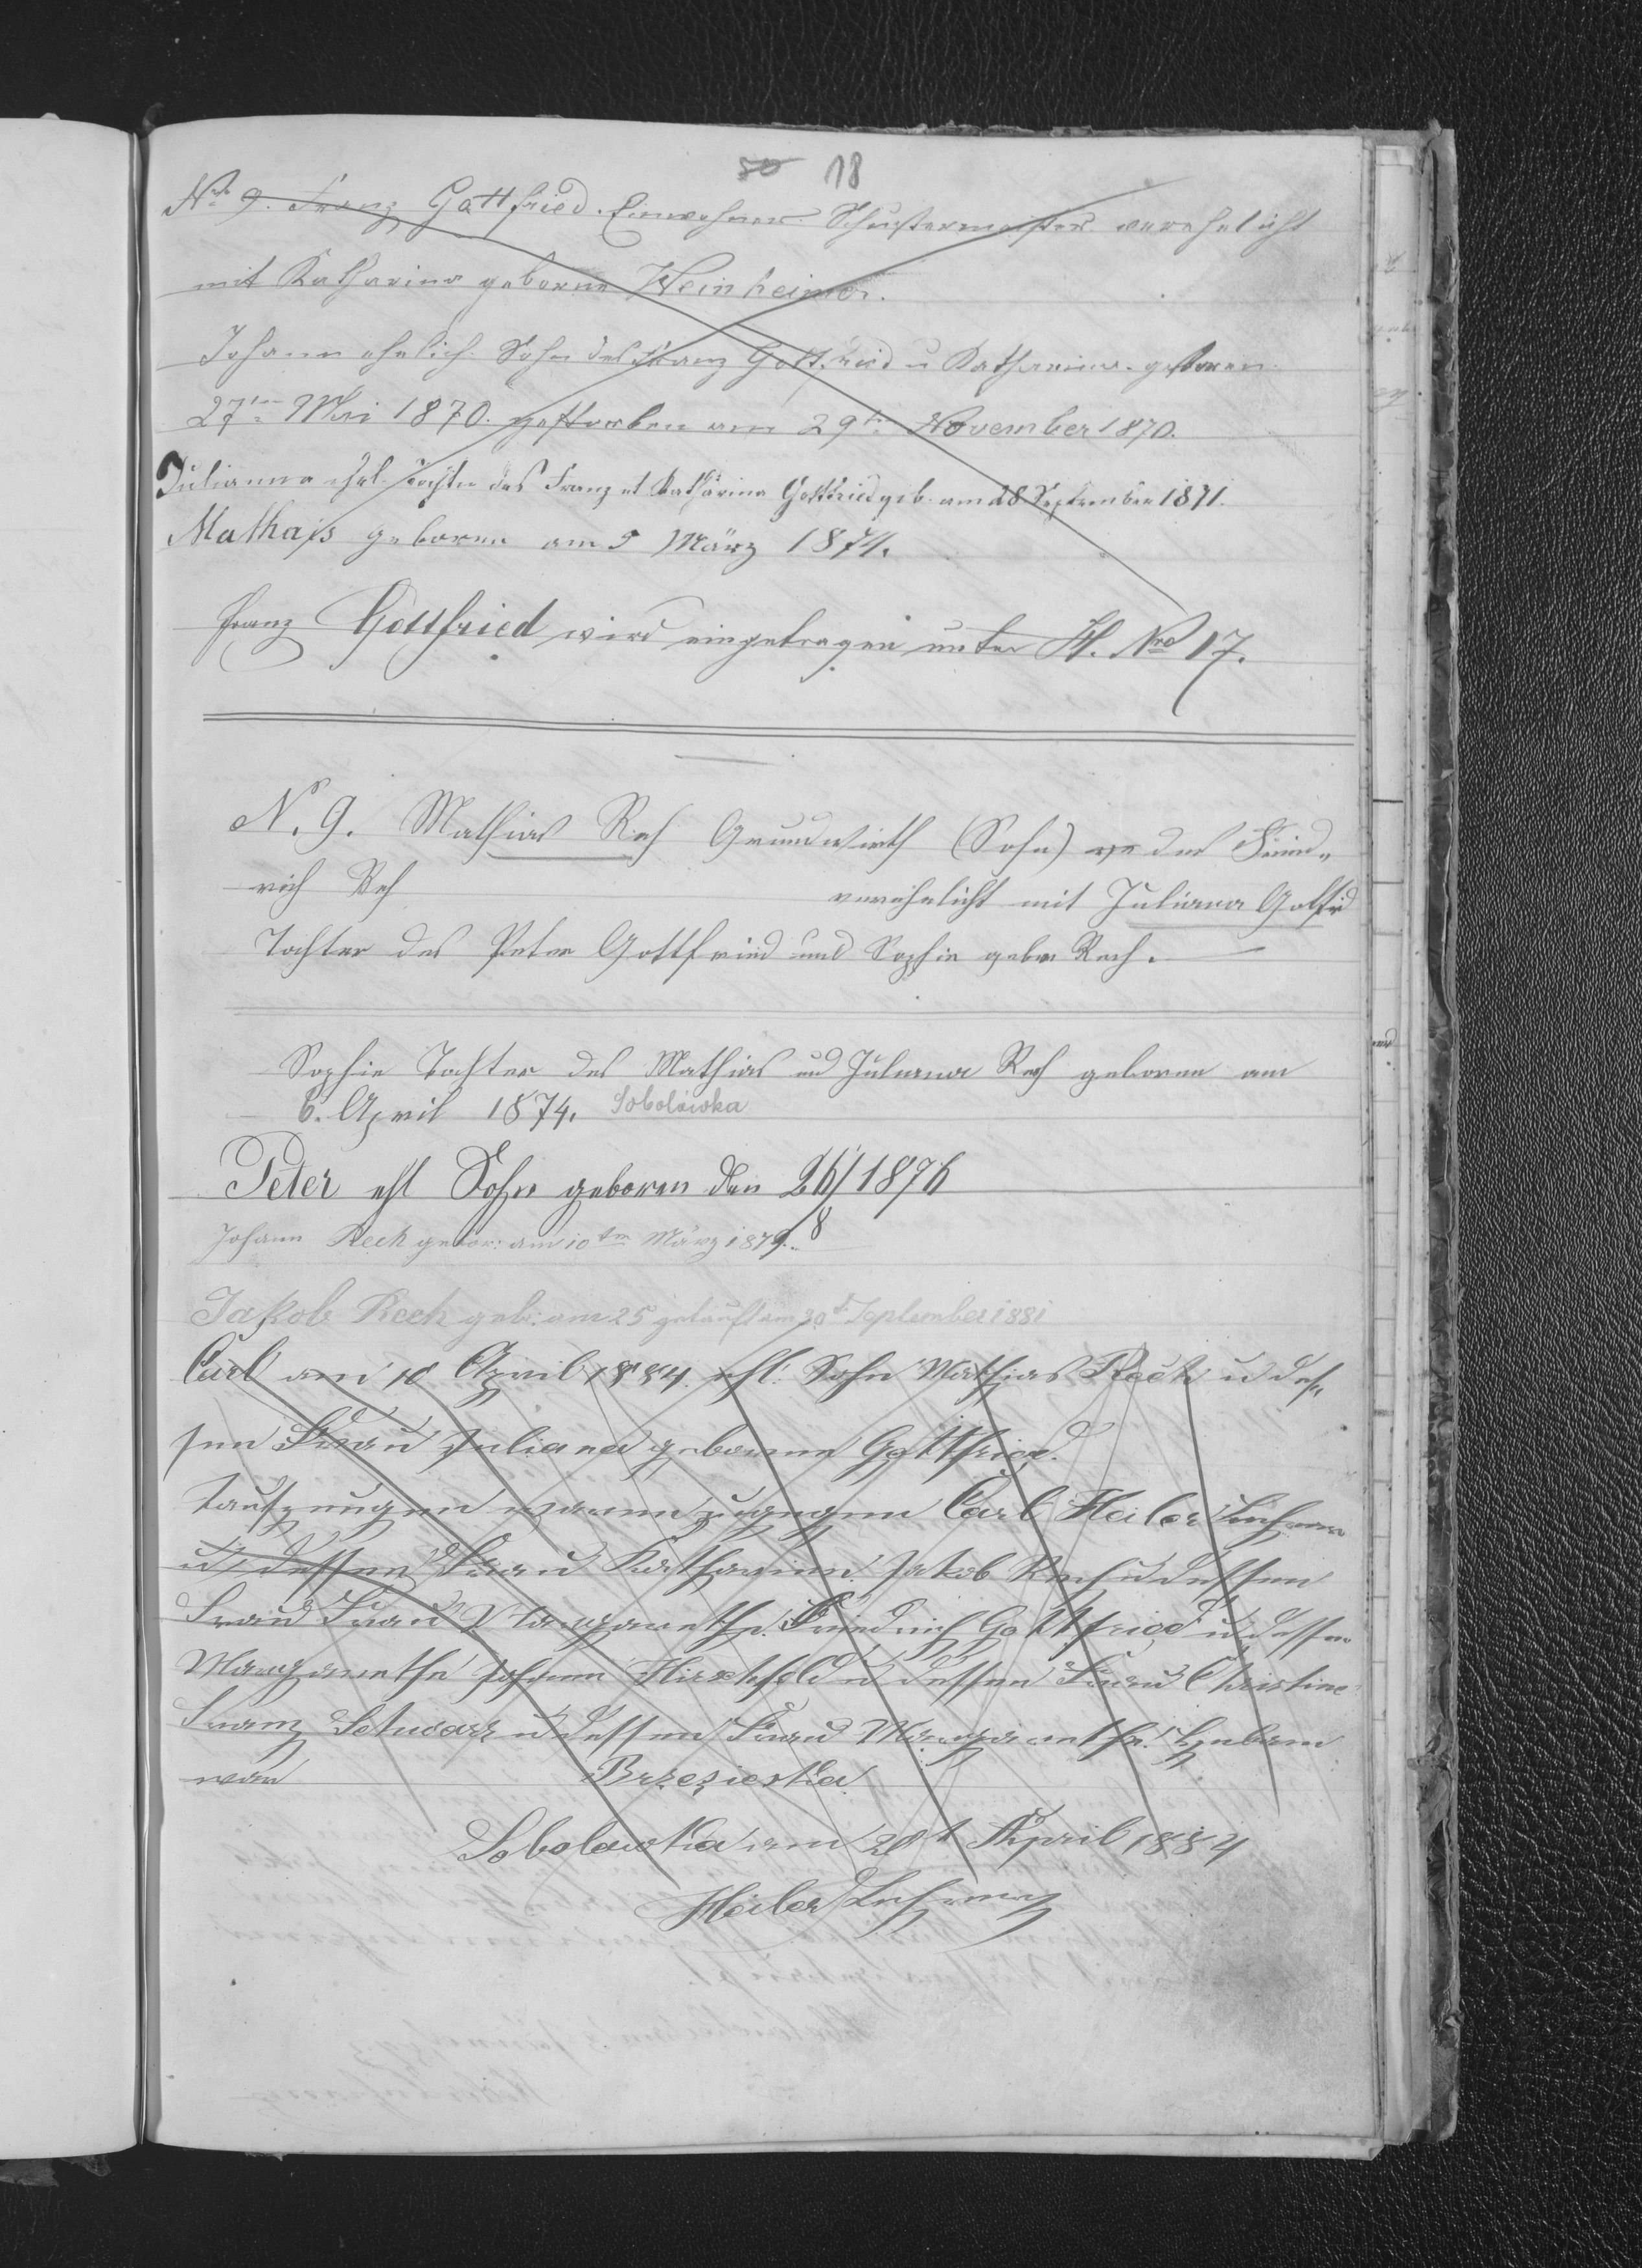 50 18
Nro 9. Franz Gottfried Einwohner Schustermeister verehelicht
mit Katharina geborne Weinheimer.
Johann ehelich. Sohn des Franz Gottfried u Katharina geboren
27ten Mai 1870. gestorben am 29te November 1870.
Julianna ehel. Tochter des Franz et Katharina Gottfried geb. am 28 September 1871.
Mathais geboren am 5 März 1874.
Franz Gottfried wird eingetragen unter H. Nro 17.
N. 9. Mathias Reh Grundwirth (Sohn) des Fried„
rich Reh verehelicht mit Juliana Gotfrd
Tochter des Peter Gottfried und Sophie geborn Rech.
Sophie Tochter des Mathias und Juliana Reh geboren am
6. April 1874. Sobolówka
Peter ehl Sohn geboren den 26/1876
Johann Rech gebor: am 10ten März 1879. 8
Jakob Rech geb: am 25 getauft am 30t September 1881
Carl am 10 April 1884. ehl. Sohn Mathias Rech u des„
sen Frau Juliana geborene Gottfried.
Taufzeugen waren zugegen Carl Heiler Lehrer
u dessen Frau Katharina. Jakob Rech u dessen
Frau Frau Margarethe. Friedrich Gottfried u dessen
Margarethe Johann Hirschfeld u dessen Frau Christine
Franz Schwarz u dessen Frau Margarethe. Hebam
war Brzezieska
Sobolowka am 20t April 1884
Heiler Lehrer